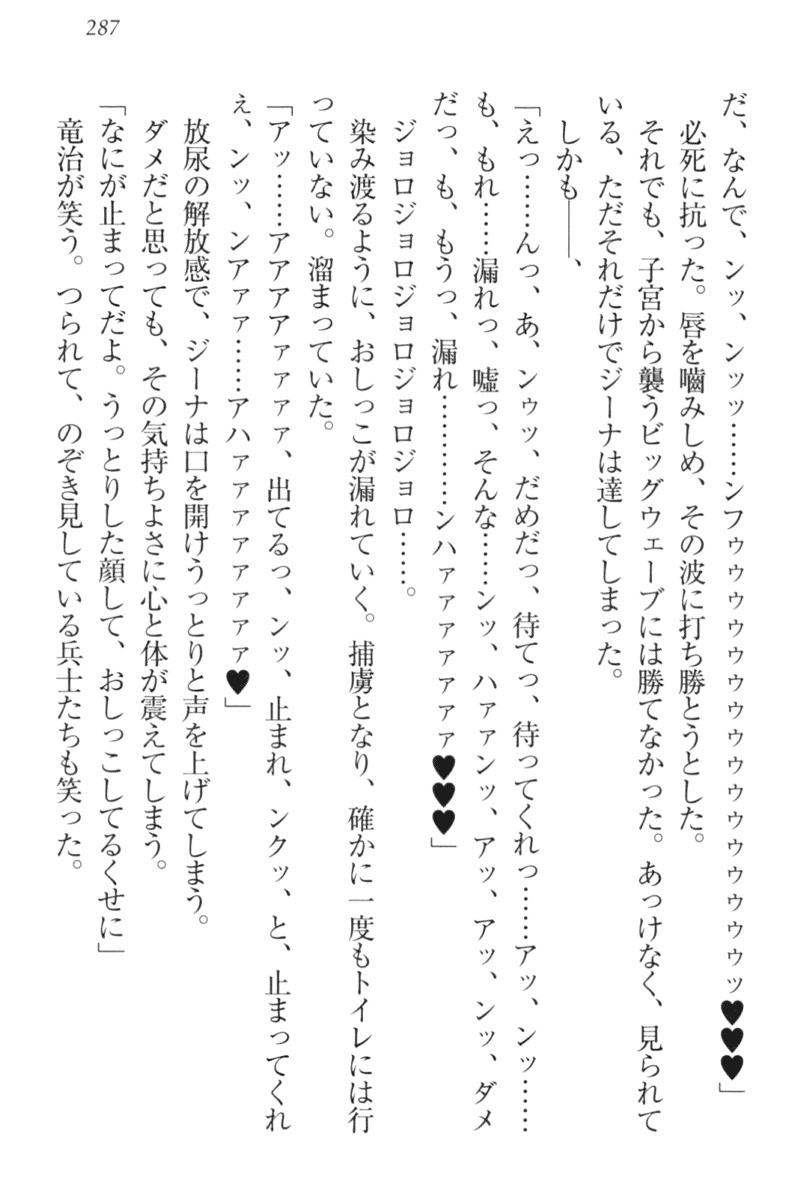 287
だ、なんで、ンッ、ンッッ……ンフゥゥウウウウウウウウウウウウウウウッ♥♥♥」
必死に抗った。唇を噛みしめ、その波に打ち勝とうとした。
それでも、子宮から襲うビッグウェーブには勝てなかった。あっけなく、見られて
いる、ただそれだけでジーナは達してしまった。
しかも――、
「えっ……んっ、あ、ンゥッ、だめだっ、待てっ、待ってくれっ……アッ、ンッ……
も、もれ……漏れっ、嘘っ、そんな……ンッ、ハァァンッ、アッ、アッ、ンッ、ダメ
だっ、も、もうっ、漏れ…………ンハァァァァァァァ♥♥♥」
ジョロジョロジョロジョロ……。
染み渡るように、おしっこが漏れていく。捕虜となり、確かに一度もトイレには行
っていない。溜まっていた。
「アッ……アアアアァァァァ、出てるっ、ンッ、止まれ、ンクッ、と、止まってくれ
ぇ、ンッ、ンアァァ……アハァァァァァァァァ♥」
放尿の解放感で、ジーナは口を開けうっとりと声を上げてしまう。
ダメだと思っても、その気持ちよさに心と体が震えてしまう。
「なにが止まってだよ。うっとりした顔して、おしっこしてるくせに」
竜治が笑う。つられて、のぞき見している兵士たちも笑った。